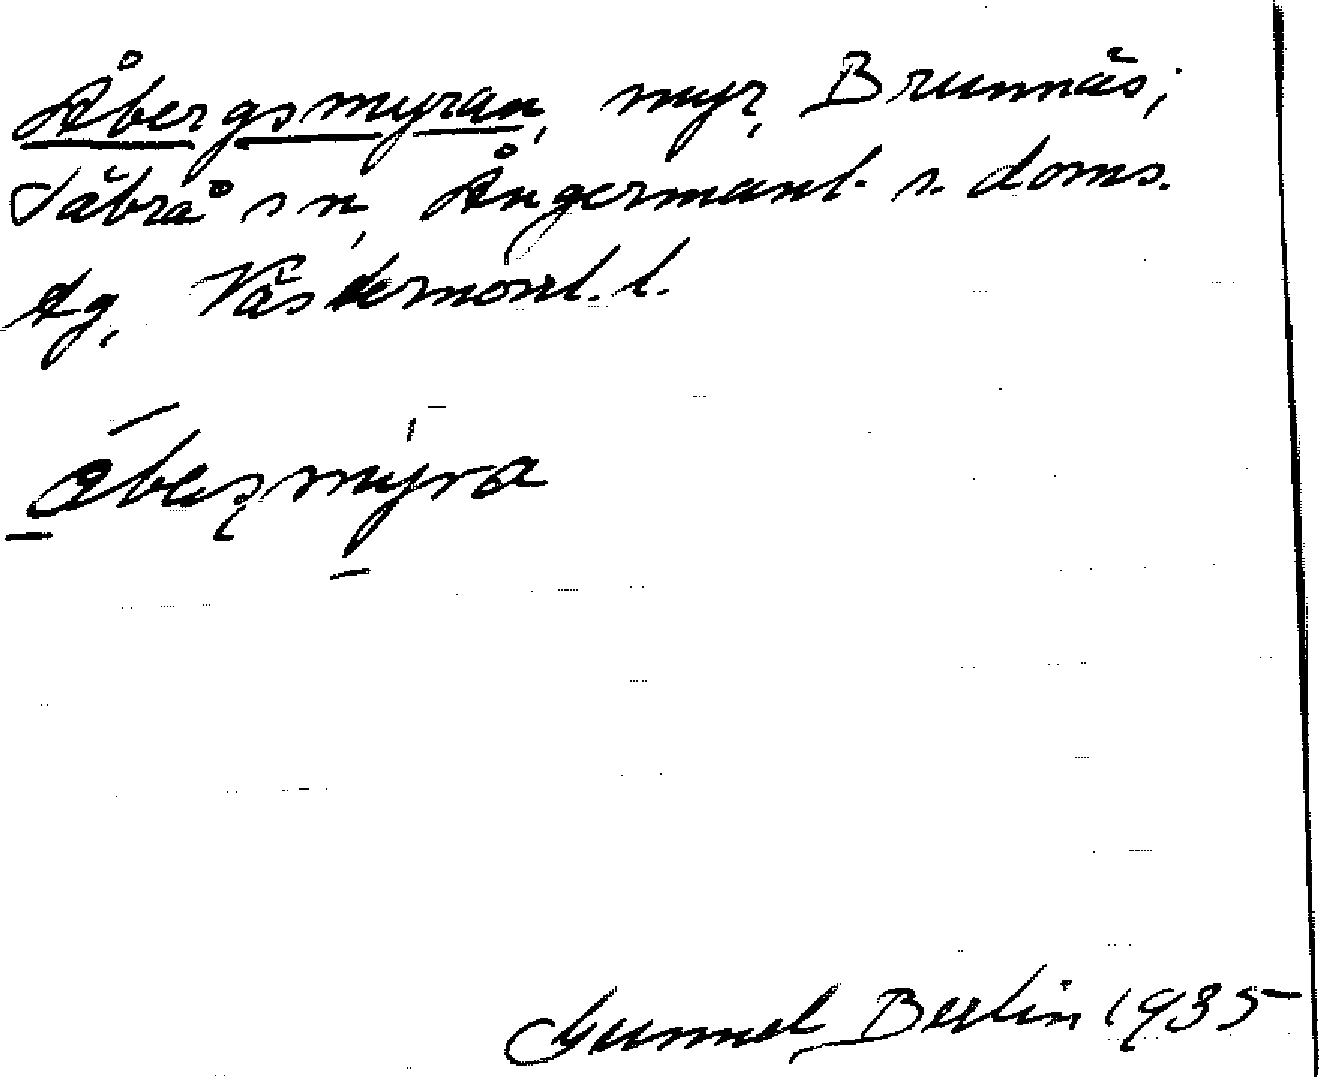 Åbergsmyran, myr, Brunnäs,
Säbrå sn, Ångermanl. s. doms.
tg, Västernorrl. l.
Gunnel Berlin 1935